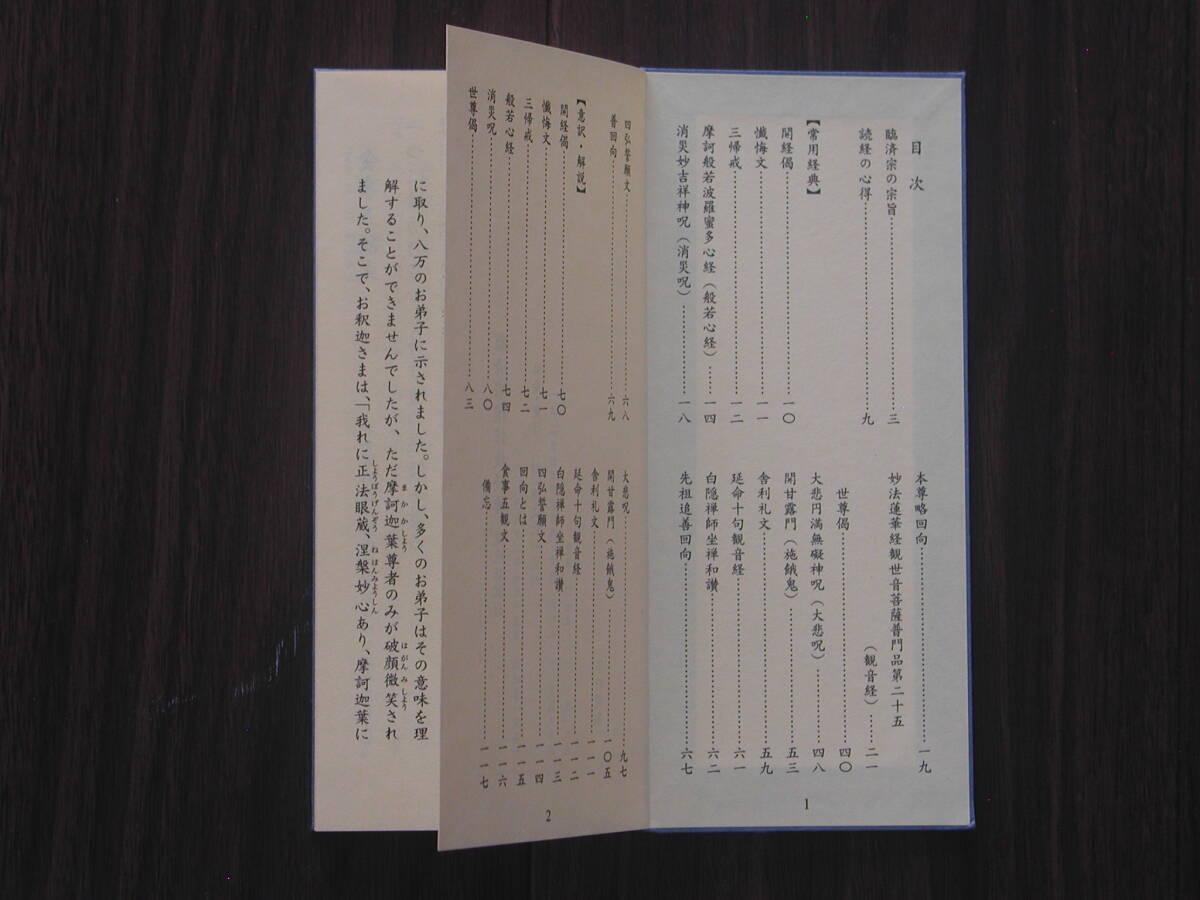 目次
臨済宗の宗旨………三
読経の心得………九
【常用経典】
開経偈………一〇
懺悔文………一一
三帰戒………一二
摩訶般若波羅蜜多心経（般若心経）……一四
消災妙吉祥神呪（消災呪）………一八
本尊略回向………一九
妙法蓮華経観世音菩薩普門品第二十五
（観音経）……二一
世尊偈………四〇
大悲円満無礙神呪（大悲呪）………四八
開甘露門（施餓鬼）………五三
舎利礼文………五九
延命十句観音経………六一
白隠禅師坐禅和讃………六二
先祖追善回向………六七
1
四弘誓願文………六八
普回向………六九
【意訳・解説】
開経偈………七〇
懺悔文………七一
三帰戒………七二
般若心経………七四
消災呪………八〇
世尊偈………八三
大悲呪………九七
開甘露門（施餓鬼）………一〇五
舎利礼文………一一一
延命十句観音経………一一二
白隠禅師坐禅和讃………一一三
四弘誓願文………一一四
回向とは………一一五
食事五観文………一一六
備忘………一一七
2
に取り、八万のお弟子に示されました。しかし、多くのお弟子はその意味を理
解することができませんでしたが、ただ摩訶迦葉尊者のみが破顔微笑され
ました。そこで、お釈迦さまは、「我れに正法眼蔵、涅槃妙心あり、摩訶迦葉に